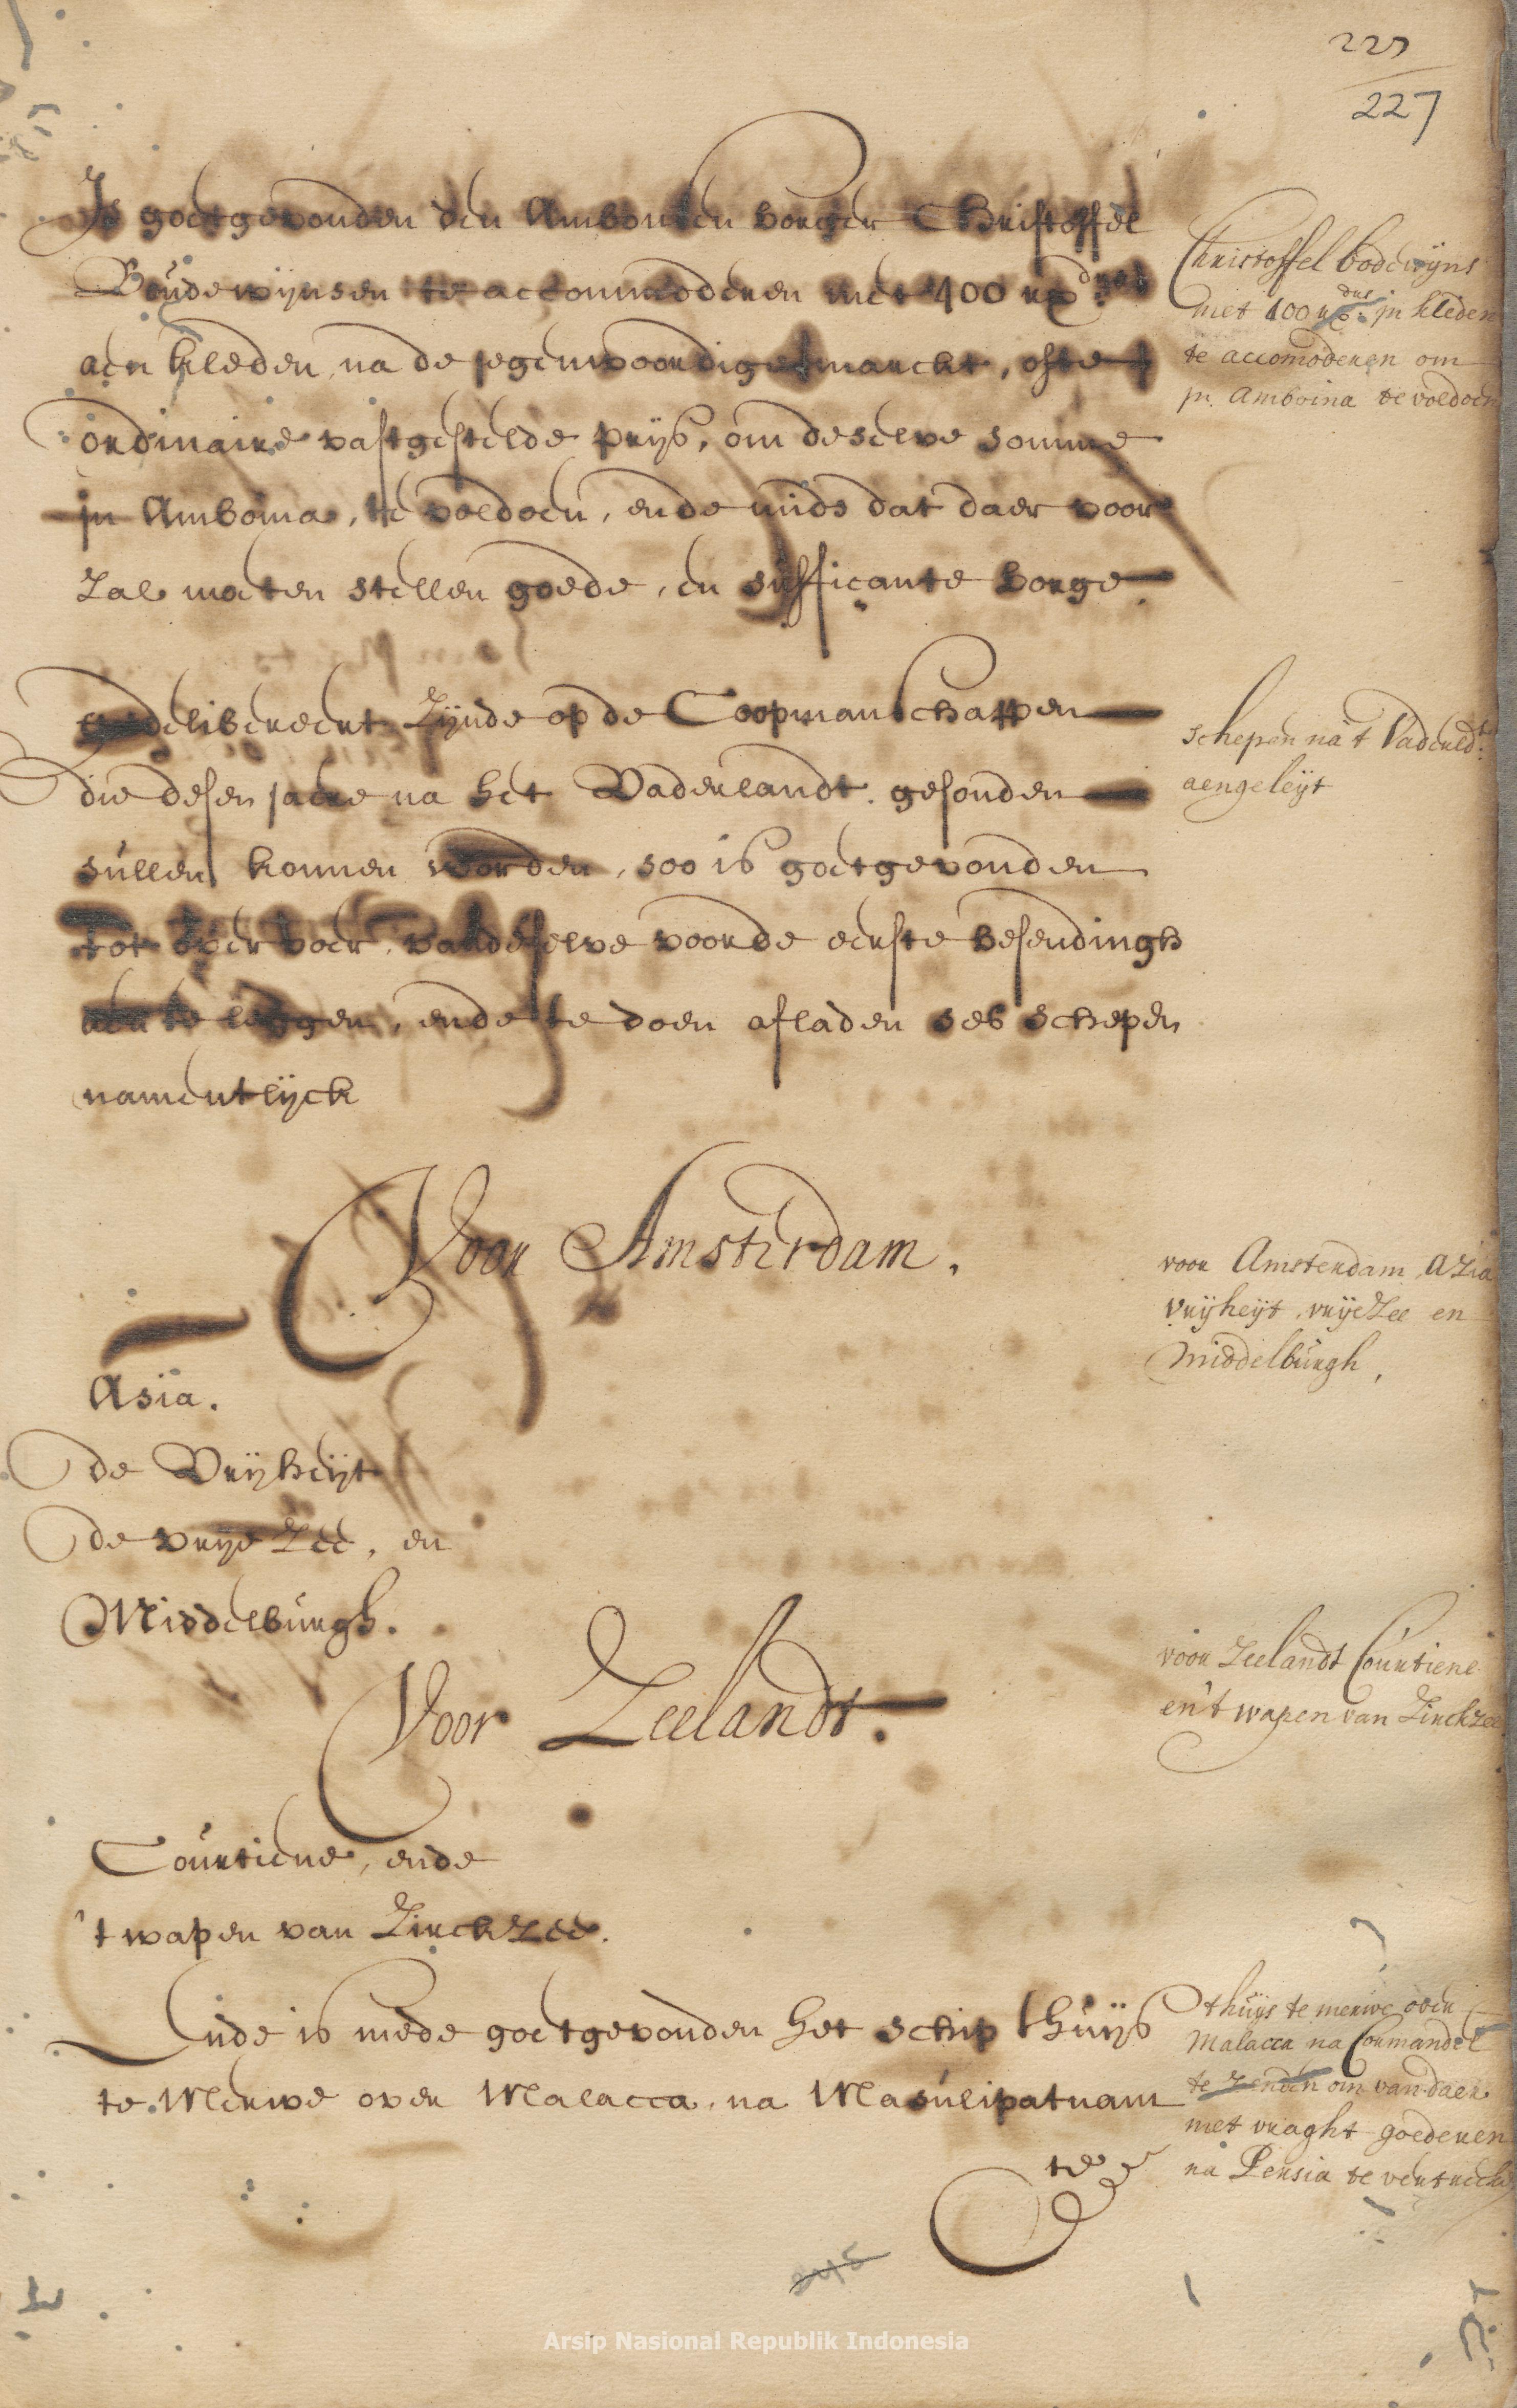 227
227
Is goetgevonden den Ambonsen borger Christoffel
Boudewijnsen te accommoderen met 400 rx.drs
aen kleden, na de jegenwoordige marckt, ofte
ordinaire vastgestelde prijs, om deselve somme
in Amboina, te voldoen, ende mids dat daer voor
zal moeten stellen goede, en sufficante borge
Christoffel bodewijns
met 400 rx.drs in kleden
te accomoderen om
in Amboina te voldoen
Gedelibereert zijnde op de Coopmanschappen
die desen jaere na het Vaderlandt gesonden
sullen konnen worden, soo is goetgevonden
tot overvoer vandeselve voor de eerste besendingh
aen te leggen, ende te doen afladen ses schepen
namentlijck
schepen na 't Vaderlt.
aengeleijt
Voor Amsterdam.
Asia.
de Vrijheijt
de vrije Zee, en
Middelburgh.
voor Amsterdam Azia
vrijheijt, vrije Zee en
Middelburgh,
Voor Zeelandt.
Courtiene, ende
't wapen van Zirckzee.
voor Zeelandt Courtiene
en 't wapen van Zirckzee
Ende is mede goetgevonden het schip thuijs
te Merwe over Malacca, na Masulipatnam
te
thuijs te merwe over
Malacca na Cormandel
te zenden om van daer
met vraght goederen
na Persia te vertrecken
Arsip Nasional Republik Indonesia